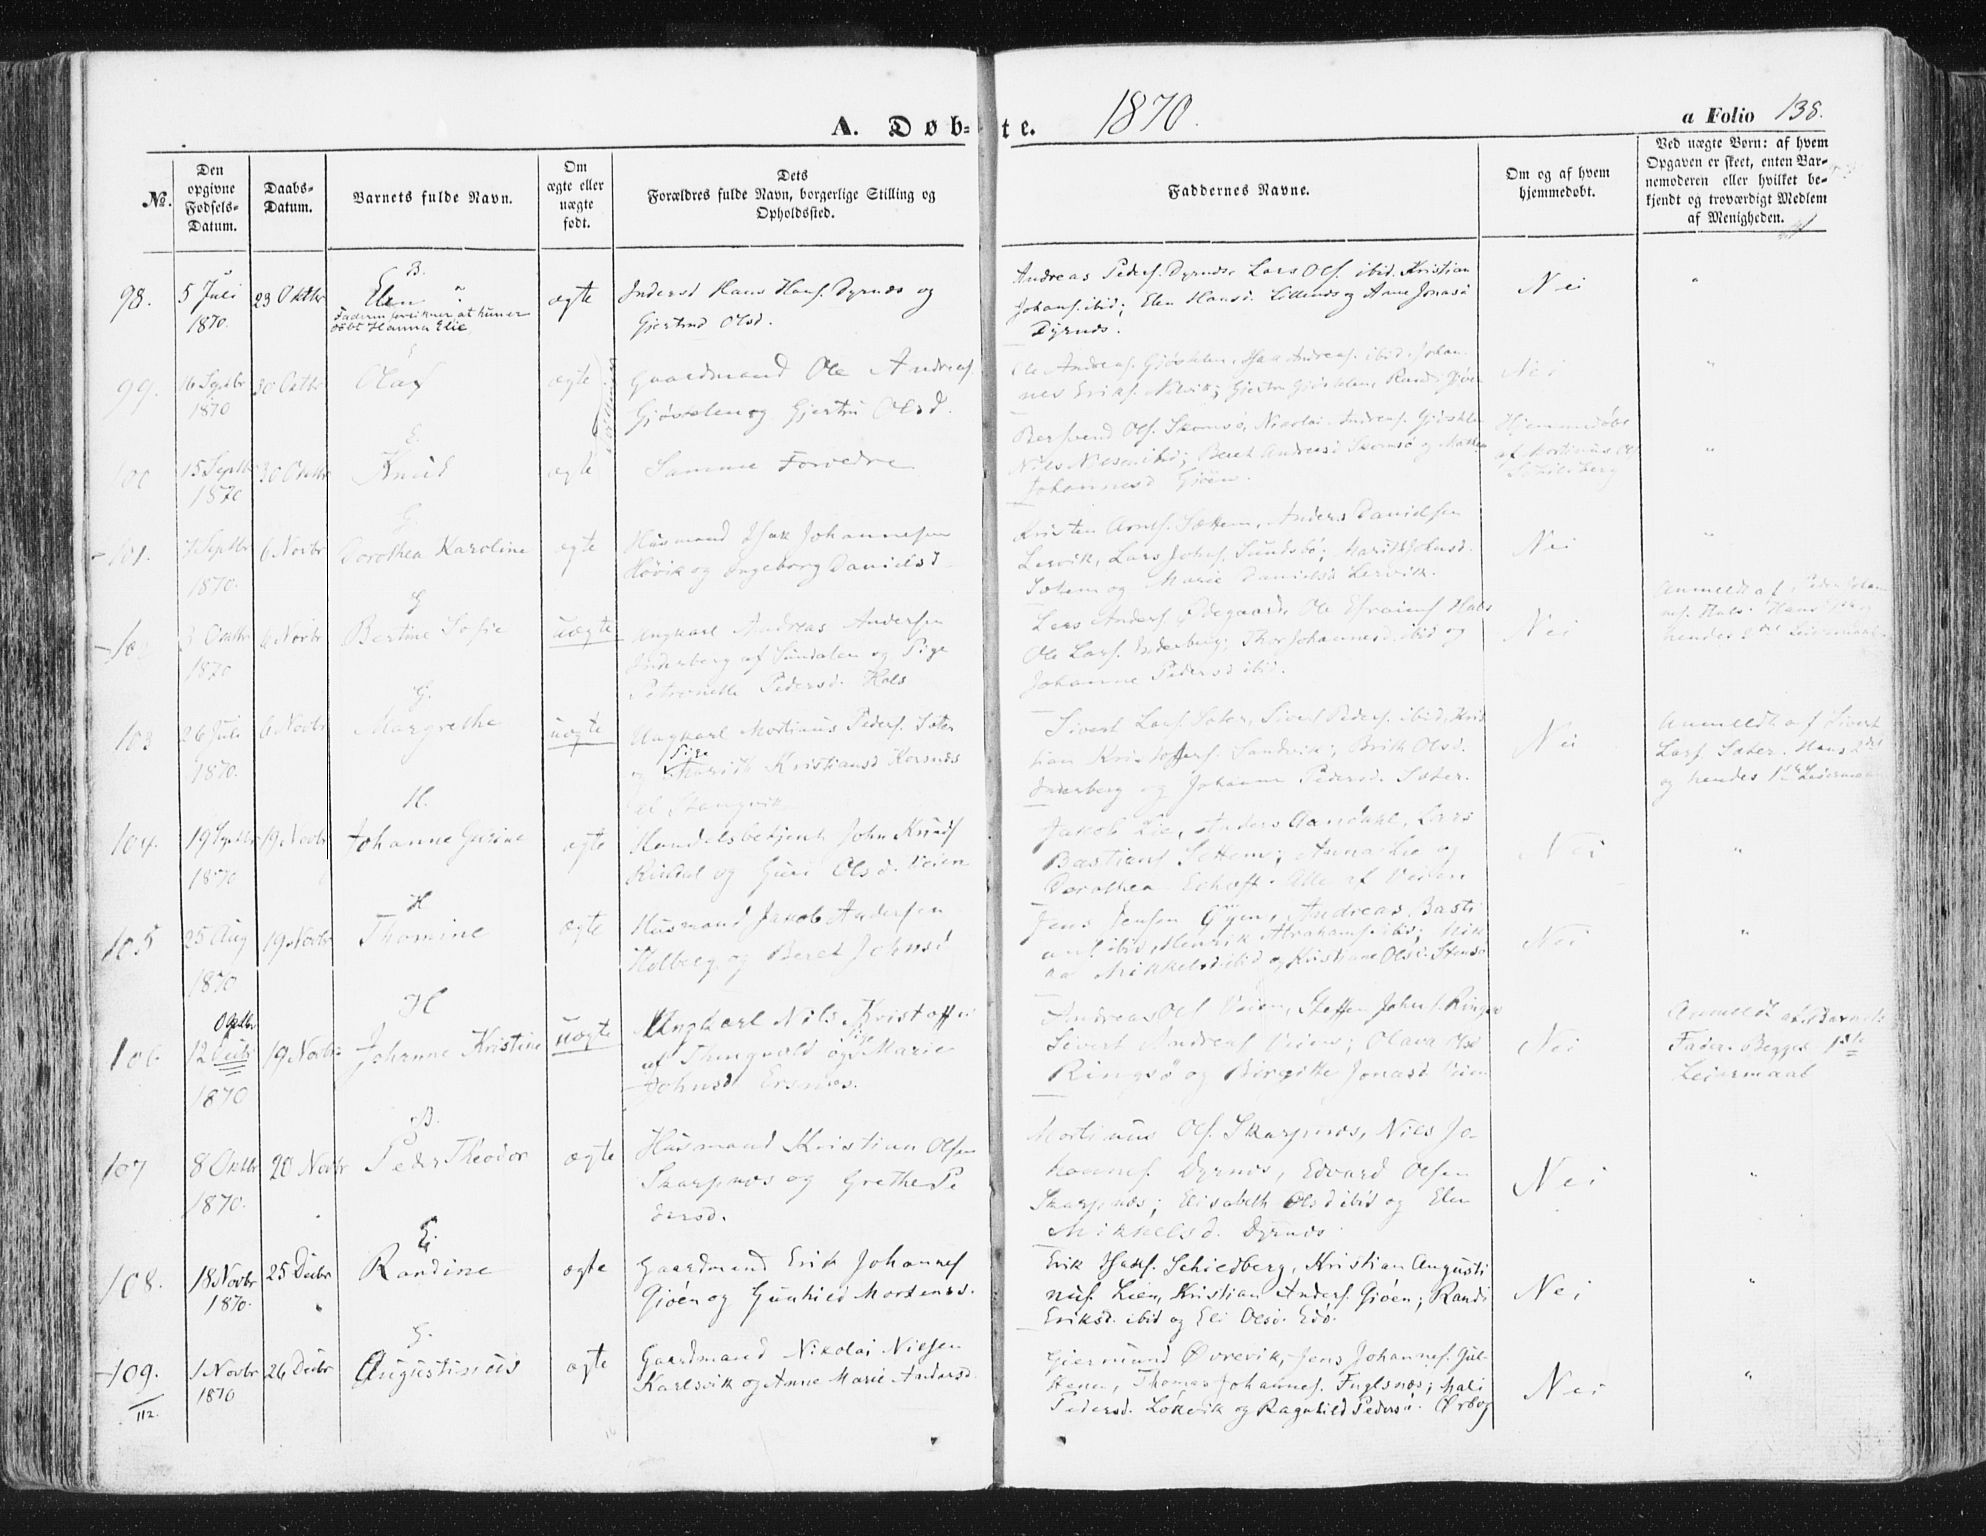 A. Døb-te. 1870. a Folio 138.
No.
Den opgivne Fødsels-Datum.
Daabs-Datum.
Barnets fulde Navn.
Om ægte eller uægte født.
Dets Forældres fulde Navn, borgerlige Stilling og Opholdssted.
Faddernes Navne.
Om og af hvem hjemmedøbt.
Ved uægte Børn: af hvem Opgaven er skeet, enten Barnemoderen eller hvilket bekjendt og troværdigt Medlem af Menigheden.
98. 5 Juli 1870. 23 Oktbr
B.
Elen
Faderen at hun er døbt Hanna Elie
ægte
Inderst Hans Hans. Dyrnæs og
Gjertrud Olsd.
Andreas Peders. Dyrnæs, Lars Ols. ibid. Kristian
Johans. ibid; Elen Hansd. Lillenæs og Anne Jonasd
Dyrnæs.
Nei "
99. 16 Septbr 1870 30 Octbr
E
Olaf
ægte
Tvillinger
Gaardmand Ole Andreas.
Gjøstølen og Gjertru Olsd.
Ole Andreas. Gjøstølen, Isak Andreas. ibid, Johan-
nes Eriks. Nelvik; Gjertru Gjøstølen, Randi Gjøen
Nei "
100 15 Septbr 1870 30 Oktbr
E.
Knud
ægte
Samme Forældre
Bersvend Ols. Skomsø, Nikolai Andreas. Gjøstølen
Nils Nilsen ibid; Beret Andreasd Skomsø og
Johannesd Gjøen.
Hjemmedøbt
af Mortinus Ols
Schieldberg "
101. 7 Septbr 1870. 6 Novbr
G.
Dorothea Karoline
ægte
Husmand Isak Johannesen
Høvik og Ingeborg Danielsd
Kristen Arnes. Sættem, Anders Danielsen
Lervik, Lars Johns. Sundsbø; Marith Johnsd.
Sætem og Marie Danielsd Lervik.
Nei "
102 3 Oktbr 1870 6 Novbr
G
Bertine Sofie
uægte
Ungkarl Andreas Andersen
Inderberg af Sundalen og Pige
Petronelle Pedersd. Hals
Lars Anders. Ødegaard, Ole Efraims. Hals
Ole Lars. Inderberg; Johannesd. ibid og
Johanne Pedersd ibid.
Nei
Anmeldt af Peder Johan-
nes. Hals. Hans 1ste og
hendes 2det Leiermaal
103 26 Juli 1870. 6 Novbr
G.
Margrethe
uægte
Ungkarl Mortinus Peders. Sæter
og Pige Marith Kristiansd Korsnæs
af Stangvik
Sivert Lars. Sæter, Sivert Peders. ibid, Kris-
tian Kristoffers. Sandvik; Brith Olsd.
Inderberg og Johanne Pedersd. Sæter.
Nei
Anmeldt af Sivert
Lars. Sæter. Hans 2det
og hendes 1ste Leiermaal
104. 19 Septbr 1870 19 Novbr
H.
Johanne Gurine
ægte
Handelsbetjent John Knuds
Rindal og Guri Olsd. Veien
Jakob Lie, Anders Aandahl, Lars
Bastians. Settem; Anna Lie og
Dorothea Alle af Veien
Nei "
105 25 Aug 1870 19 Novbr
H
Thomine
ægte
Husmand Jakob Andersen
Holberg og Beret Johnsd
Jens Jensen Gyen, Andreas Basti-
ans. ibid, Henrik Abrahams. ibid;
Mikkelsd ibid og Kristiane Olsd. Stensø
Nei "
106 12 1870 19 Novbr
H
Johanne Kristine
uægte
Ungkarl Nils Kristoffer
af Thingvold og Pige Marie
Johnsd Ersnæs.
Andreas Ols Veien, Steffen Johns. Ringsø
Sivert Andreas Veien; Olava Olsd
Ringsø og Birgitte Jonasd Veien
Nei
Anmeldt af Barnets
Fader. Begges 1ste
Leiermaal
107 8 Oktbr 1870. 20 Novbr
B.
Peder Theodor
ægte
Husmand Kristian Olsen
Skarpnæs og Grethe Pe-
dersd.
Mortinus Ols. Skarpnæs, Niels Jo-
hannes. Dyrnæs, Edvard Olsen
Skarpnæs; Elisabeth Olsd ibid og Elen
Mikkelsd. Dyrnæs.
Nei "
108. 18 Novbr 1870. 25 Debr
E.
Randine
ægte
Gaardmand Erik Johannes
Gjøen og Gunhild Mortensd.
Erik Isaks. Schieldberg, Kristian Augusti-
nus. Lien, Kristian Anders. Gjøen; Randi
Eriksd. ibid og Eli Olsd. Edø.
Nei "
109. 1 Novbr 1870 26 Debr
G.
Augustinus
ægte
Gaardmand Nikolai Nielsen
Karlsvik og Anne Marie Andersd.
Gjermund Øvrevik, Jens Johannes. Gul-
stenen, Thomas Johannes. Fuglsnæs; Mali
Pedersd. Løkvik og Ragnhild Pedersd. Ørbog
Nei "
112.